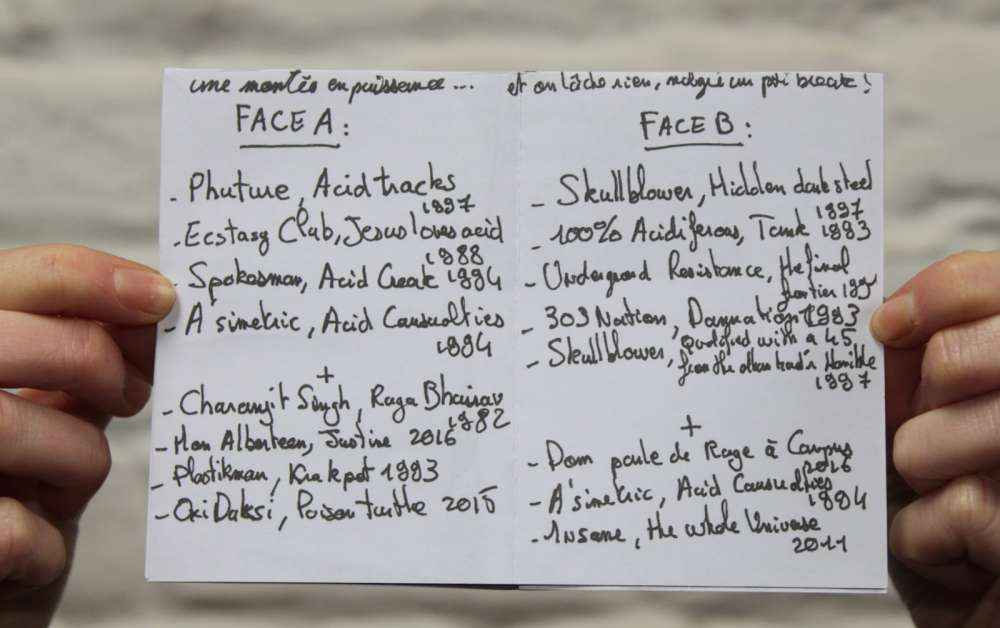 une montée en puissance...
FACE A :
- Phuture, Acid tracks
1997
- Ecstasy Club, Jesus loves acid
1988
- Spokesman, Acid Creak 1994
- A'simetric, Acid Casualties
1994
+
- Charanjit Singh, Raga Bhairav
1982
- Mon Alberteen, Justine 2016
- Plastikman, Krakpot 1993
- Oxi Daksi, Poison turtle 2015
et on lâche rien, malgré un pti break !
FACE B :
- Skullblower, Hidden dark steel
1997
- 100% Acidiferous, Tank 1993
- Undergound Resistance, the final
frontier 199
- 303 Nation, 1993
- Skullblower, qualified with a 45
from the
1997
+
- Dom poule de Rage à Campus
2016
- A'simetric, Acid Casualties
1994
- Insane, the whole Universe
2011